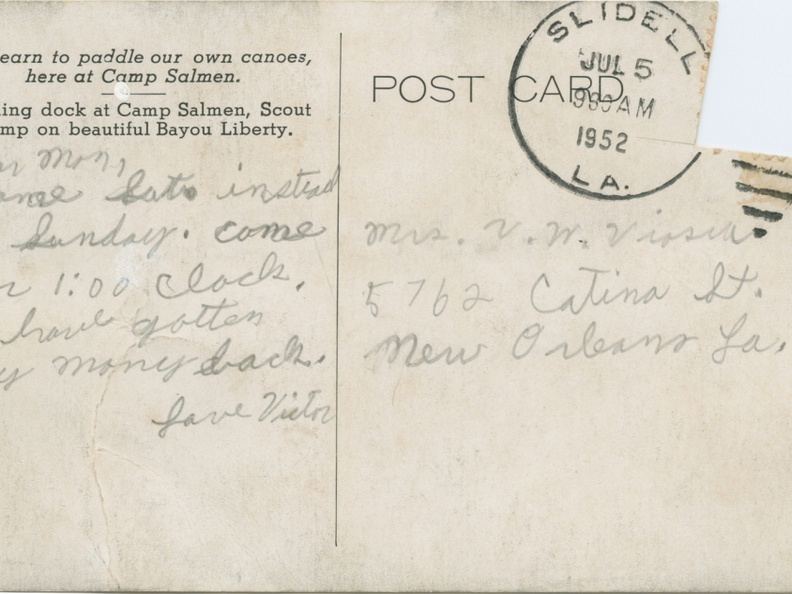 earn to paddle our own canoes,
here at Camp Salmen.
ing dock at Camp Salmen, Scout
mp on beautiful Bayou Liberty.
r Mom,
ome Sat. instead
Sunday. come
r 1:00 clock.
have gotten
y money back.
Love Victor
POST CARD
SLIDELL
JUL 5
9 30 AM
1952
LA.
Mrs. V. W. Viosca
5762 Catina St.
New Orleans La.